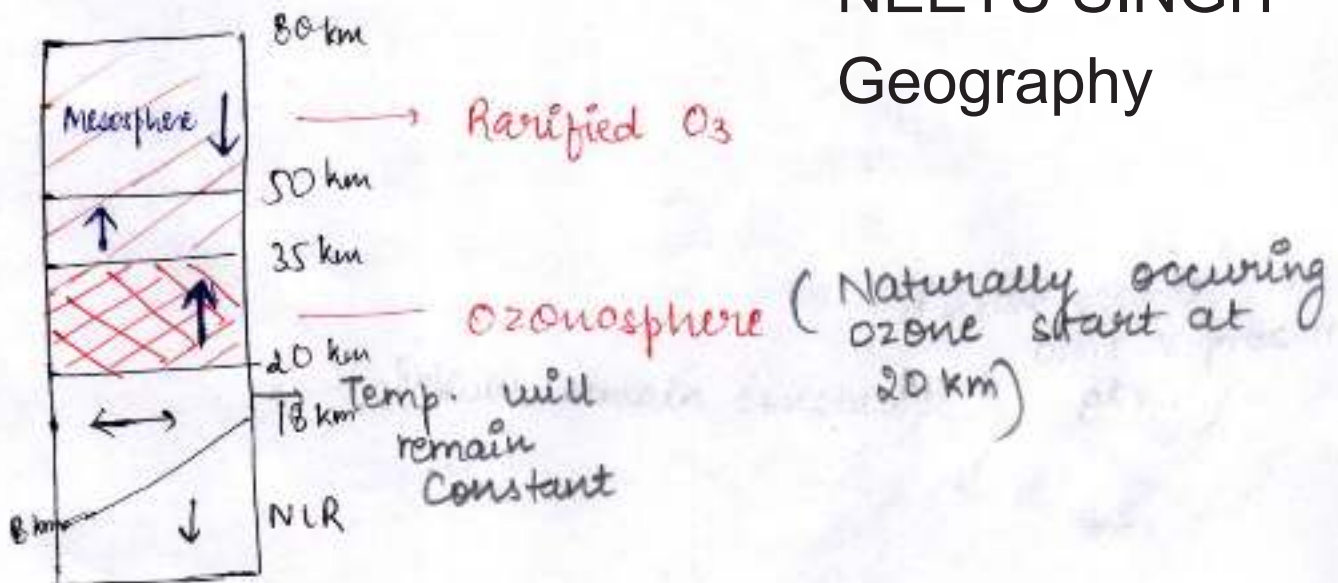 NEETU SINGH
Geography
80 km
Mesosphere
Rarified O3
50 km
35 km
Ozonosphere
(Naturally occuring
ozone start at
20 km)
20 km
18 km
Temp. will
remain
Constant
8 km
NLR